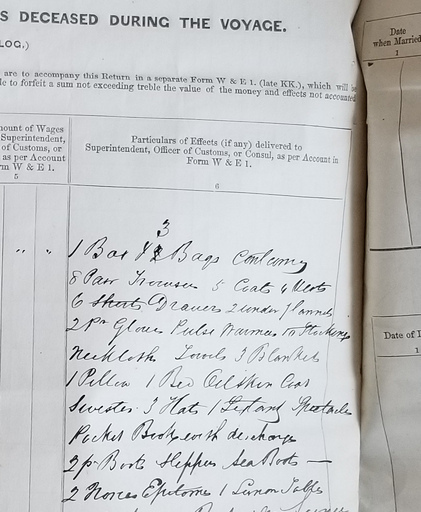 S DECEASED DURING THE VOYAGE.
LOG.)
are to accompany this Return in a separate Form W & E 1. (late KK.), which will be
le to forfeit a sum not exceeding treble the value of the money and effects not accounted
nount of Wages
Superintendent,
of Customs, or
as per Account
rm W & E 1.
5
Particulars of Effects (if any) delivered to
Superintendent, Officer of Customs, or Consul, as per Account in
Form W & E 1.
6
Date
when Married
1
Date of D
1
" "
3
1 Box & Bags
8 Pair Trousers 5 Coats 4 Vests
6 Shirts Drawers 2 under Flannels
2 pr Gloves Pulse Warmers Stockings
Neckcloths Towels 3 Blankets
1 Pillow 1 Bed Oilskin Coat
Sweater 3 Hats 1 Spectacles
Pocket Book with discharges
2 pr Boots Slippers Sea Boots —
2 Nories Epitome 1